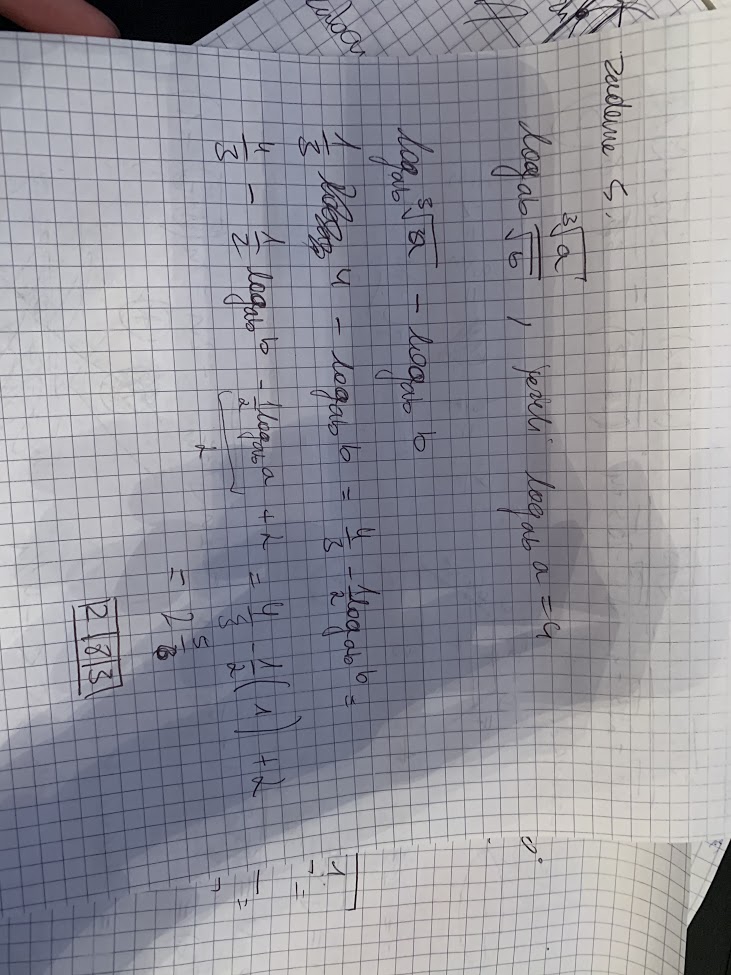 zadanie 5.
log_ab ∛a / √b , jeżeli log_ab a = 4
log_ab ∛a - log_ab b
1/3 4 - log_ab b = 4/3 - 1/2 log_ab b =
4/3 - 1/2 log_ab b - 1/2 log_ab a + 2 = 4/3 - 1/2 (1) + 2
2
= 2 5/6
2 8 3